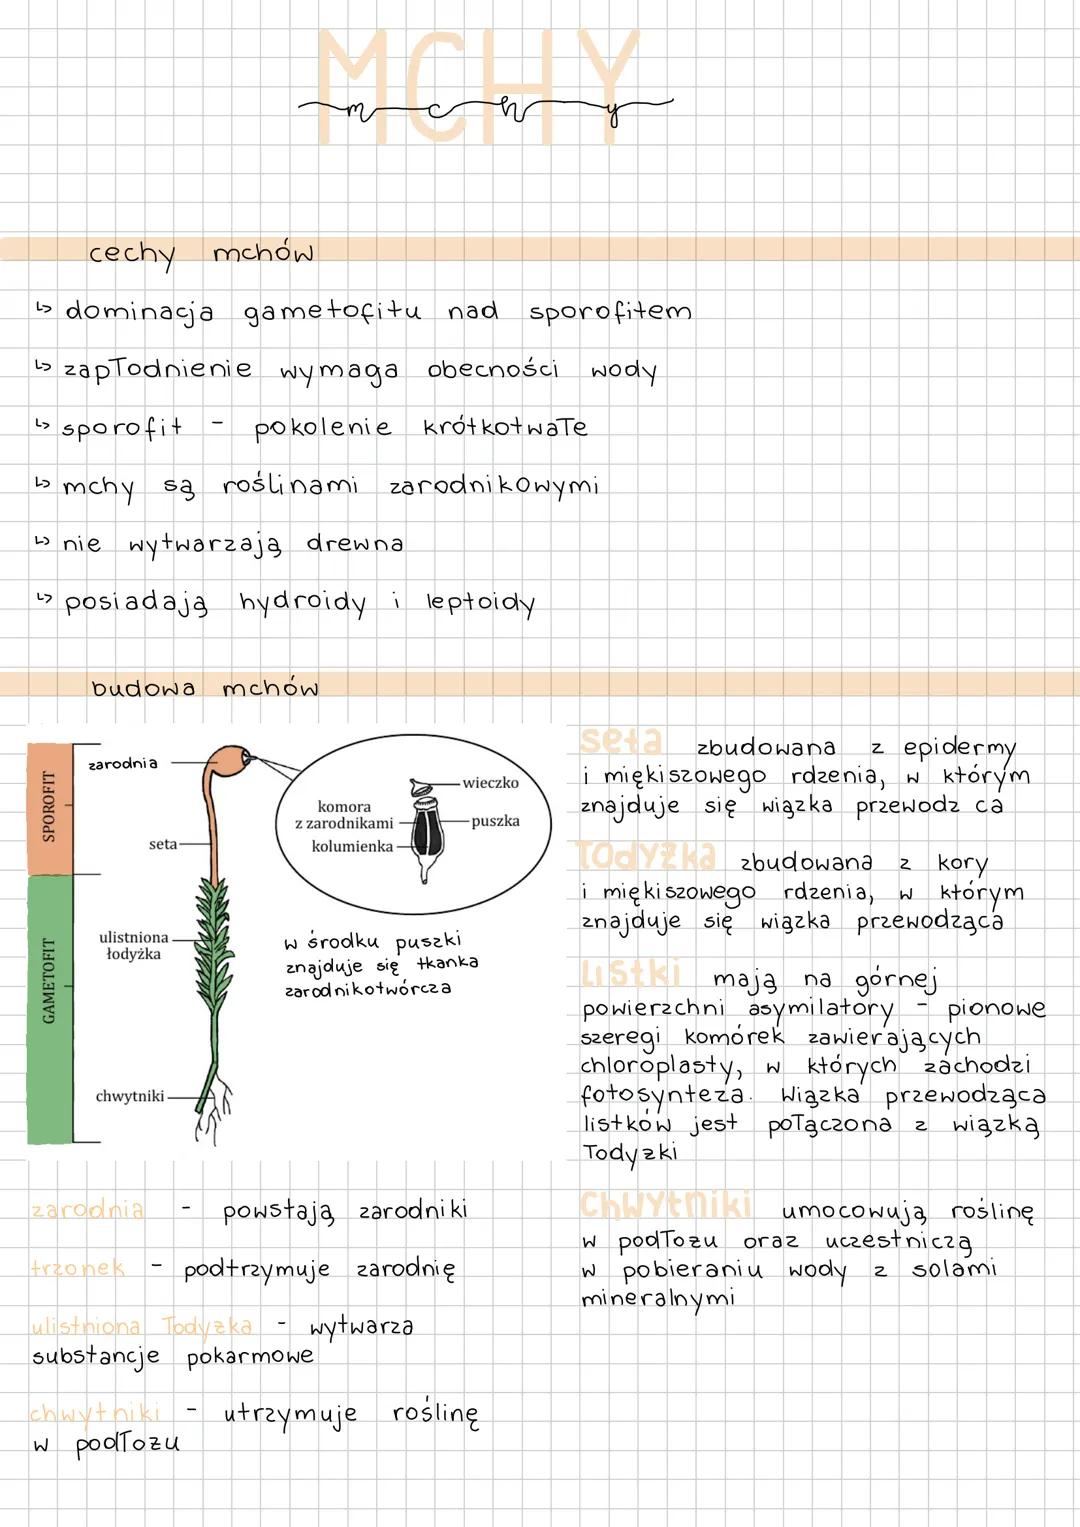 MCHY
mchy
cechy mchów
↳ dominacja gametofitu nad sporofitem
↳ zapłodnienie wymaga obecności wody
↳ sporofit - pokolenie krótkotwałe
↳ mchy są roślinami zarodnikowymi
↳ nie wytwarzają drewna
↳ posiadają hydroidy i leptoidy
budowa mchów
SPOROFIT
GAMETOFIT
zarodnia
seta
ulistniona
łodyżka
chwytniki
wieczko
komora
z zarodnikami
puszka
kolumienka
w środku puszki
znajduje się tkanka
zarodnikotwórcza
seta zbudowana z epidermy
i miękiszowego rdzenia, w którym
znajduje się wiązka przewodz ca
łodyżka zbudowana z kory
i miękiszowego rdzenia, w którym
znajduje się wiązka przewodząca
listki mają na górnej
powierzchni asymilatory - pionowe
szeregi komórek zawierających
chloroplasty, w których zachodzi
fotosynteza. Wiązka przewodząca
listków jest połączona z wiązką
łodyzki
chwytniki umocowują roślinę
w podłozu oraz uczestniczą
w pobieraniu wody z solami
mineralnymi
zarodnia - powstają zarodniki
trzonek - podtrzymuje zarodnię
ulistniona łodyzka - wytwarza
substancje pokarmowe
chwytniki - utrzymuje roślinę
w podłozu